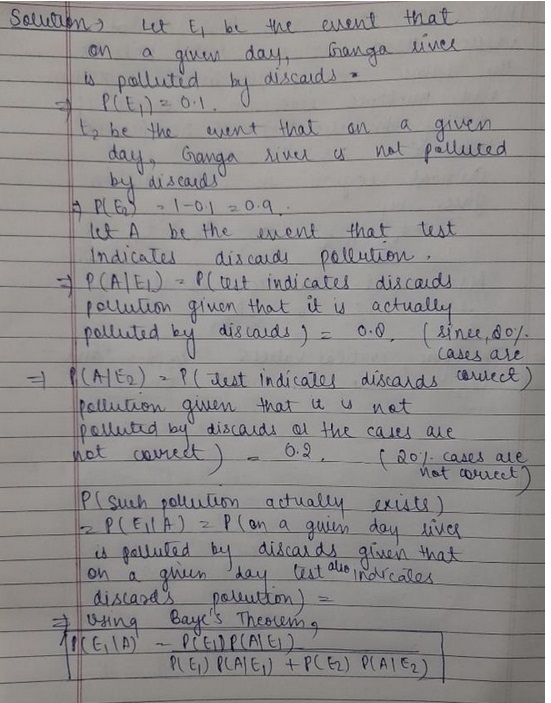 Solution → Let E₁ be the event that
on a given day, Ganga river
is polluted by discards.
⇒ P(E₁) = 0.1.
E₂ be the event that on a given
day, Ganga river is not polluted
by discards
⇒ P(E₂) = 1-0.1 = 0.9.
let A be the event that test
indicates discards pollution.
⇒ P(A|E₁) = P(test indicates discards
pollution given that it is actually
polluted by discards) = 0.8. (since, 80%
cases are
⇒ P(A|E₂) = P(test indicates discards correct)
pollution given that it is not
polluted by discards or the cases are
not correct) = 0.2. (20% cases are
not correct)
P(Such pollution actually exists)
= P(E₁|A) = P(on a given day river
is polluted by discards given that
on a given day test also indicates
discards pollution) =
⇒ Using Baye's Theorem,
P(E₁|A) = P(E₁)P(A|E₁)
P(E₁) P(A|E₁) + P(E₂) P(A|E₂)